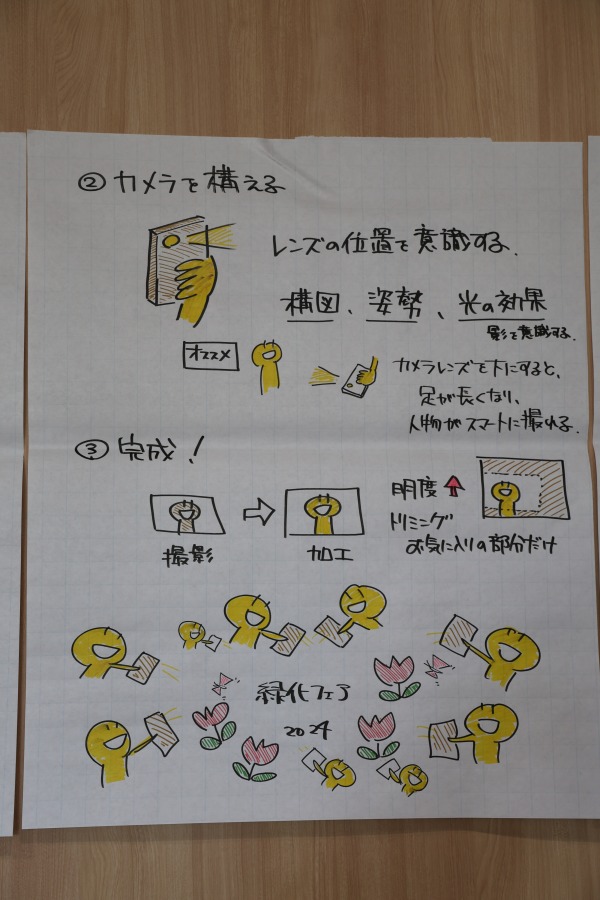 ② カメラを構える
レンズの位置を意識する.
構図、姿勢、光の効果
影を意識する.
オススメ
カメラレンズを下にすると、
足が長くなり、
人物がスマートに撮れる.
③ 完成!
明度
撮影
加工
トリミング
お気に入りの部分だけ
緑化フェア
2024